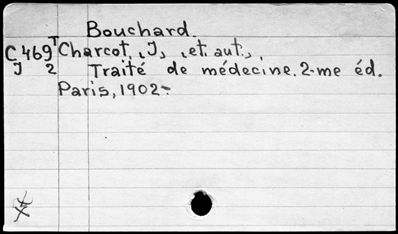 Bouchard.
C 469 T Charcot, J, et. aut.,
J 2 Traité de médecine. 2-me éd.
Paris, 1902-